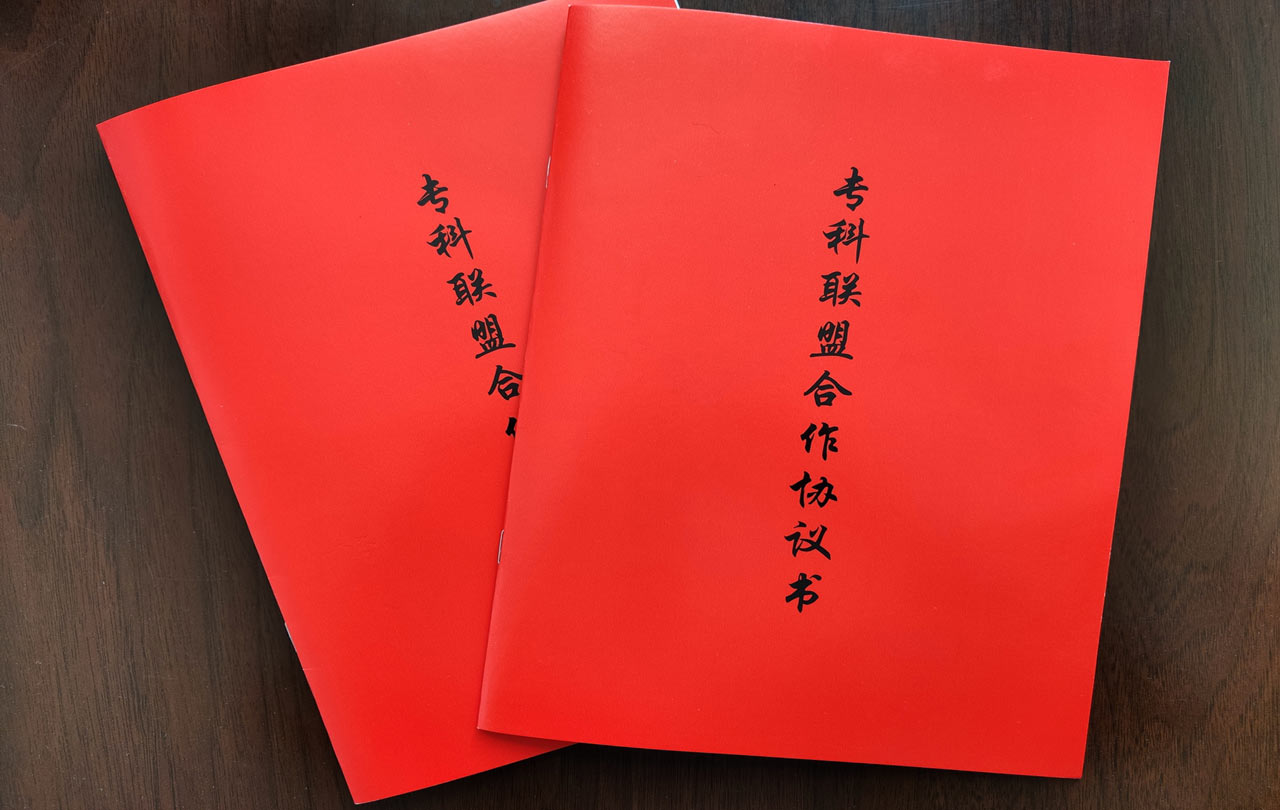 专科联盟合
专科联盟合作协议书